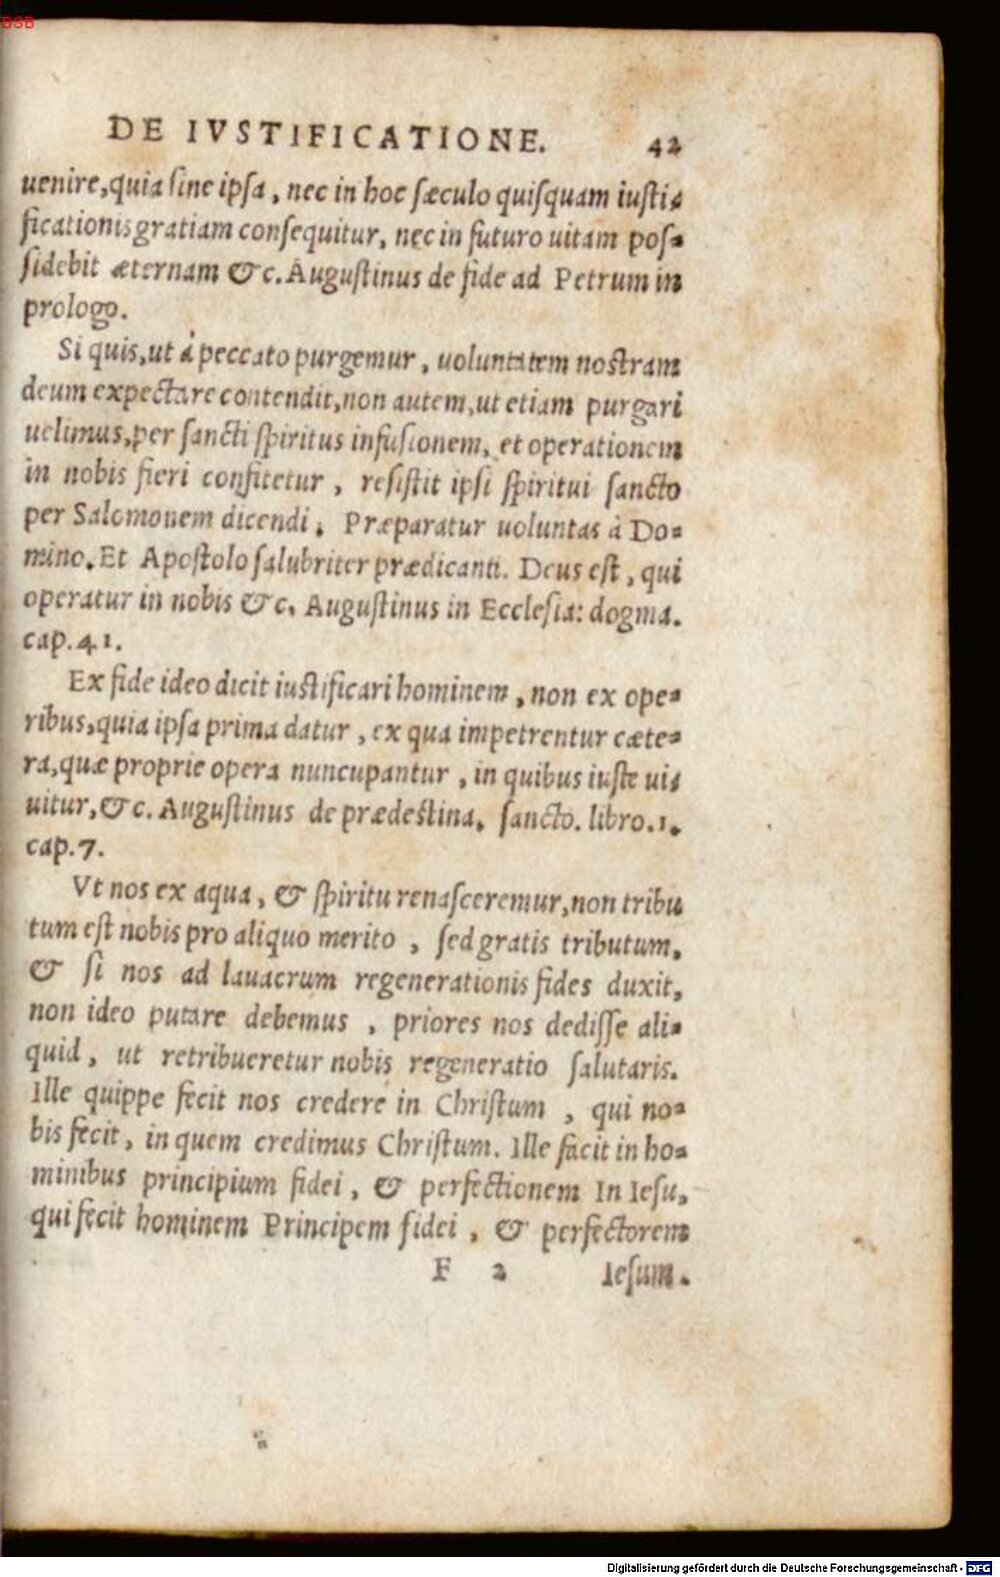 BSB
DE IVSTIFICATIONE. 42
uenire,quia sine ipsa, nec in hoc sæculo quisquam iusti-
ficationis gratiam consequitur, nec in futuro uitam pos-
sidebit æternam &c. Augustinus de fide ad Petrum in
prologo.
Si quis,ut à peccato purgemur, uoluntatem nostram
deum expectare contendit,non autem,ut etiam purgari
uelimus,per sancti spiritus infusionem, et operationem
in nobis fieri confitetur, resistit ipsi spiritui sancto
per Salomonem dicendi. Præparatur uoluntas à Do-
mino. Et Apostolo salubriter prædicanti. Deus est, qui
operatur in nobis &c. Augustinus in Ecclesia: dogma.
cap.41.
Ex fide ideo dicit iustificari hominem, non ex ope-
ribus,quia ipsa prima datur, ex qua impetrentur cæte-
ra,quæ proprie opera nuncupantur, in quibus iuste ui-
uitur,&c. Augustinus de prædestina. sancto. libro.1.
cap.7.
Vt nos ex aqua, & spiritu renasceremur,non tribu
tum est nobis pro aliquo merito, sed gratis tributum,
& si nos ad lauacrum regenerationis fides duxit,
non ideo putare debemus, priores nos dedisse ali-
quid, ut retribueretur nobis regeneratio salutaris.
Ille quippe fecit nos credere in Christum, qui no-
bis fecit, in quem credimus Christum. Ille facit in ho-
minibus principium fidei, & perfectionem In Iesu,
qui fecit hominem Principem fidei, & perfectorem
F 2 Iesum.
Digitalisierung gefördert durch die Deutsche Forschungsgemeinschaft - DFG